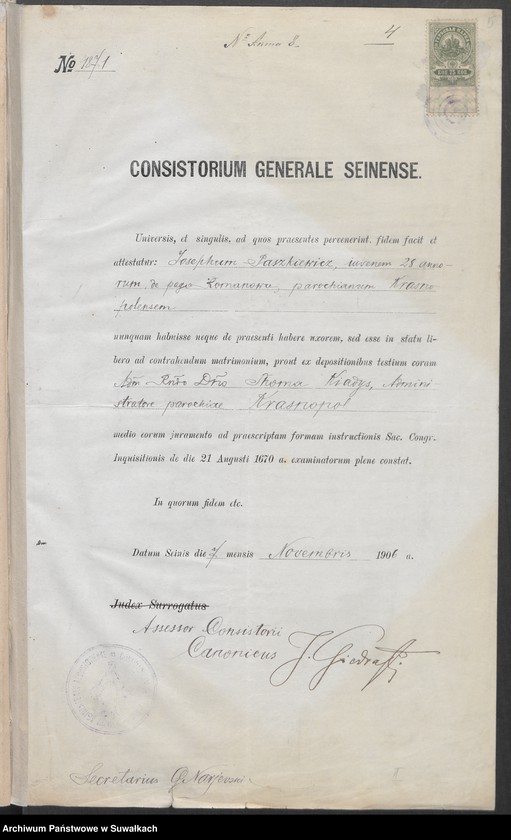 Nº Anna 8.
4
№ 1871
CONSISTORIUM GENERALE SEINENSE.
Universis, et singulis, ad quos praesentes pervenerint. fidem facit et
attestatur: Josephum Paszkiewicz, iuvenem 28 anno-
rum, de pago Romanowce, parochianum Krasno
polensem
nunquam habuisse neque de praesenti habere uxorem, sed esse in statu li-
bero ad contrahendum matrimonium, prout ex depositionibus testium coram
Adm. Rndo Dno Thoma Kiadys, Admini-
stratore parochiae Krasnopol
medio eorum juramento ad praescriptam formam instructionis Sac. Congr.
Inquisitionis de die 21 Augusti 1670 a. examinatorum plene constat.
In quorum fidem etc.
Datum Seinis die 7. mensis Novembris 1906 a.
Judex Surrogatus
Assessor Consistorii
Canonicus J. Giedraft.
Secretarius
Archiwum Państwowe w Suwałkach